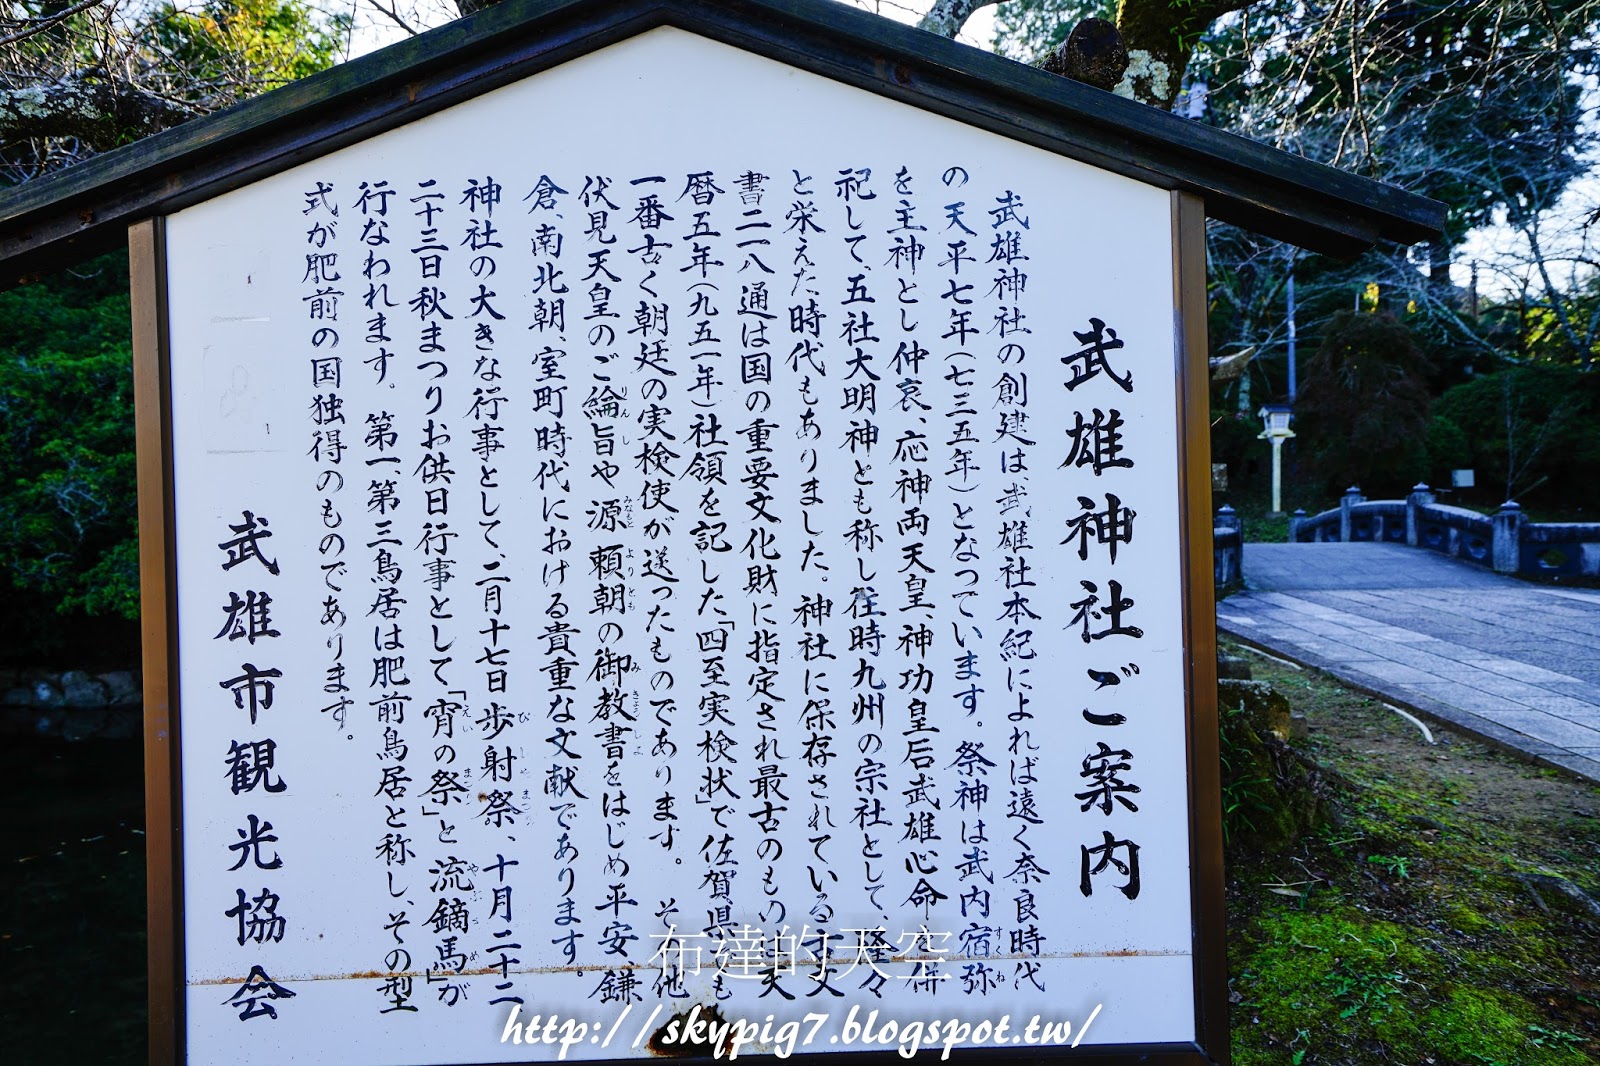 武雄神社ご案内
武雄神社の創建は、武雄社本紀によれば遠く奈良時代
の天平七年(七三五年)となっています。祭神は武内宿弥
を主神とし仲哀、応神両天皇、神功皇后武雄心命を併
祀して、五社大明神とも称し往時九州の宗社として、隆々
と栄えた時代もありました。神社に保存されている古文
書二一八通は国の重要文化財に指定され最古のものは天
暦五年(九五一年)社領を記した「四至実検状」で佐賀県も
一番古く朝廷の実検使が送ったものであります。その他
伏見天皇のご綸旨や源頼朝の御教書をはじめ平安、鎌
倉、南北朝、室町時代における貴重な文献であります。
神社の大きな行事として、二月十七日歩射祭、十月二十二、
二十三日秋まつりお供日行事として「宵の祭」と流鏑馬」が
行なわれます。第一、第三鳥居は肥前鳥居と称し、その型
式が肥前の国独得のものであります。
武雄市観光協会
布達的天空
http://skypig7.blogspot.tw/